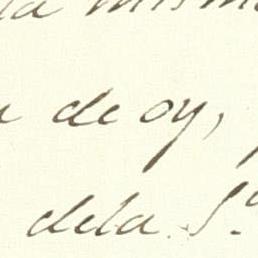 la misma
de oy,
dela S.